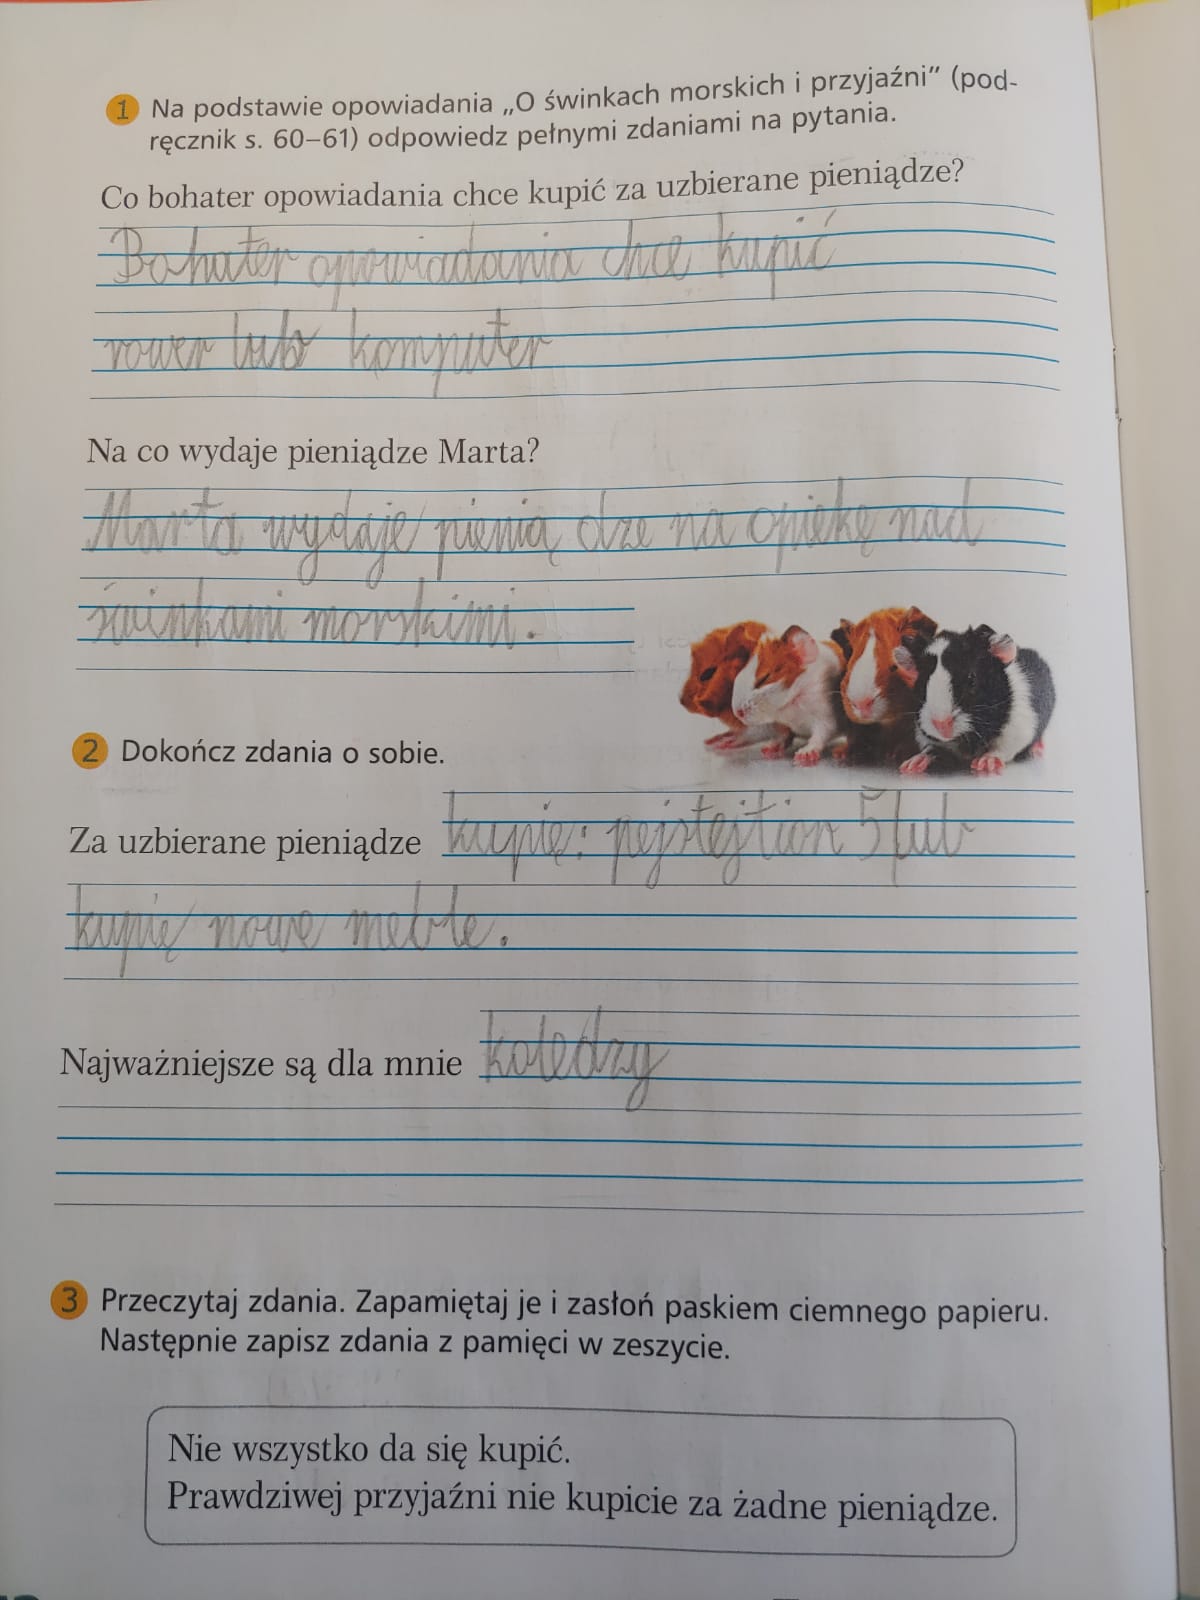 1 Na podstawie opowiadania „O świnkach morskich i przyjaźni” (pod-
ręcznik s. 60–61) odpowiedz pełnymi zdaniami na pytania.
Co bohater opowiadania chce kupić za uzbierane pieniądze?
Bohater opowiadania chce kupić
rower lub komputer
Na co wydaje pieniądze Marta?
Marta wydaje pienią dze na opiekę nad
świnkami morskimi.
2 Dokończ zdania o sobie.
Za uzbierane pieniądze kupię: pejstejtion 5 lub
kupię nowe meble.
Najważniejsze są dla mnie koledzy
3 Przeczytaj zdania. Zapamiętaj je i zasłoń paskiem ciemnego papieru.
Następnie zapisz zdania z pamięci w zeszycie.
Nie wszystko da się kupić.
Prawdziwej przyjaźni nie kupicie za żadne pieniądze.